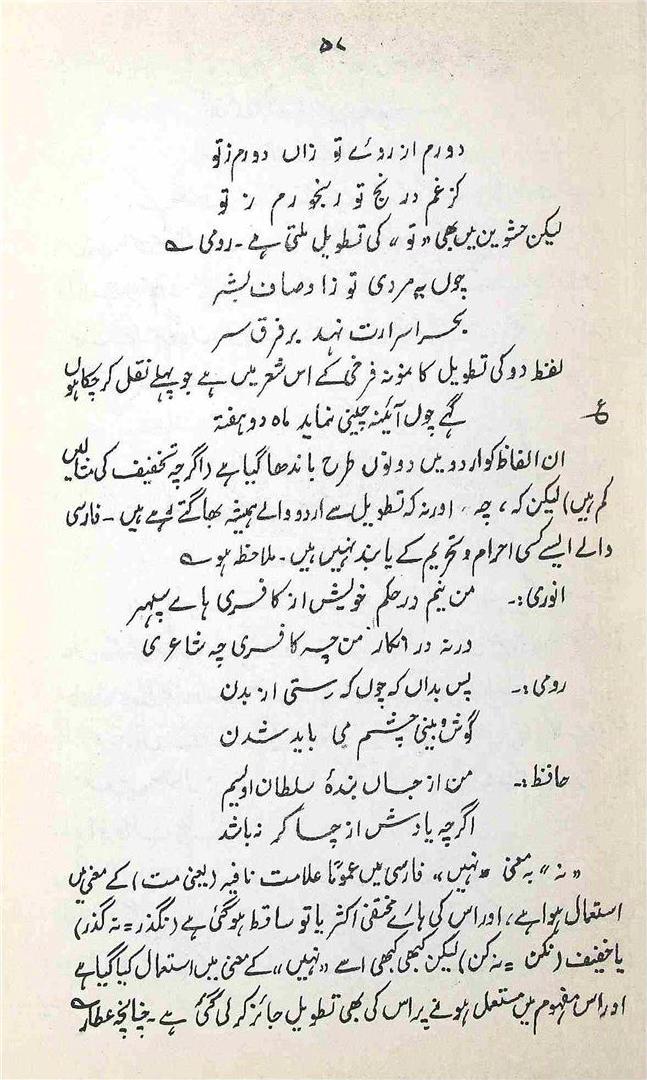 ۵۸
دورم از روئے تو زاں دورم ز تو
کز غم در نج تو رنجورم ز تو
لیکن حشوین میں بھی "تو" کی تطویل ملتی ہے۔ رومی ؎
چوں بہ مردی تو ز اوصاف بشر
بحر اسرارت نہد بر فرق سر
لفظ دو کی تطویل کا نمونہ فرخی کے اس شعر میں ہے جو پہلے نقل کر چکا ہوں
ع
گہے چوں آئینہ چینی نماید ماہ دو ہفتہ
ان الفاظ کو اردو میں دونوں طرح باندھا گیا ہے (اگرچہ تخفیف کی مثالیں
کم ہیں) لیکن کہ، چہ، اور نہ کہ تطویل سے اردو والے ہمیشہ بھاگتے رہے ہیں۔ فارسی
والے ایسے کسی احرام و تحریم کے پابند نہیں ہیں۔ ملاحظہ ہو ؎
انوری:۔ من نیم در حکم خویش از کافری ہائے سپہر
ورنہ در انکار من چہ کافری چہ شاعری
رومی:۔ پس بداں کہ چوں کہ رستی از بدن
گوش و بینی چشم می باید شدن
حافظ:۔ من از جاں بندۂ سلطان اویسم
اگرچہ یادش از چاکر نہ باشد
"نہ" بہ معنی "نہیں" فارسی میں عموماً علامت نافیہ (یعنی مت) کے معنی میں
استعمال ہوا ہے، اور اس کی ہائے مختفی اکثر یا تو ساقط ہو گئی ہے (نگذر = نہ گذر)
یا خفیف (نکن = نہ کن) لیکن کبھی کبھی اسے "نہیں" کے معنی میں استعمال کیا گیا ہے
اور اس مفہوم میں مستعمل ہونے پر اس کی بھی تطویل جائز کر لی گئی ہے۔ چنانچہ عطار ؎